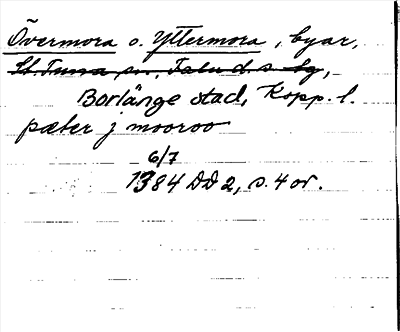 Övermora o. Yttermora, byar,
St. Tuna sn, Falu d. s. bg,
Borlänge stad, Kopp. l.
pæter j mooroo
6/7
1384 DD 2, s. 4 or.